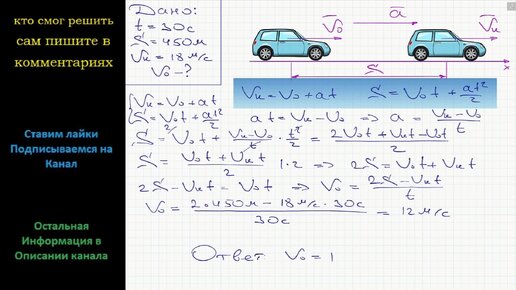 кто смог решить
сам пишите в
комментариях
Ставим лайки
Подписываемся на
Канал
Остальная
Информация в
Описании канала
Дано:
t = 30с
S = 450м
Vк = 18 м/с
V₀ - ?
V₀
a
Vк
S
x
Vк = V₀ + at S = V₀t + at²/2
Vк = V₀ + at
S = V₀t + at²/2 at = Vк - V₀ => a = (Vк - V₀)/t
S = V₀t + (Vк - V₀)/t · t²/2 = (2V₀t + Vкt - V₀t)/2
S = (V₀t + Vкt)/2 | · 2 => 2S = V₀t + Vкt
2S - Vкt = V₀t => V₀ = (2S - Vкt)/t
V₀ = (2·450м - 18 м/с · 30с)/30с = 12 м/с
Ответ V₀ = 1